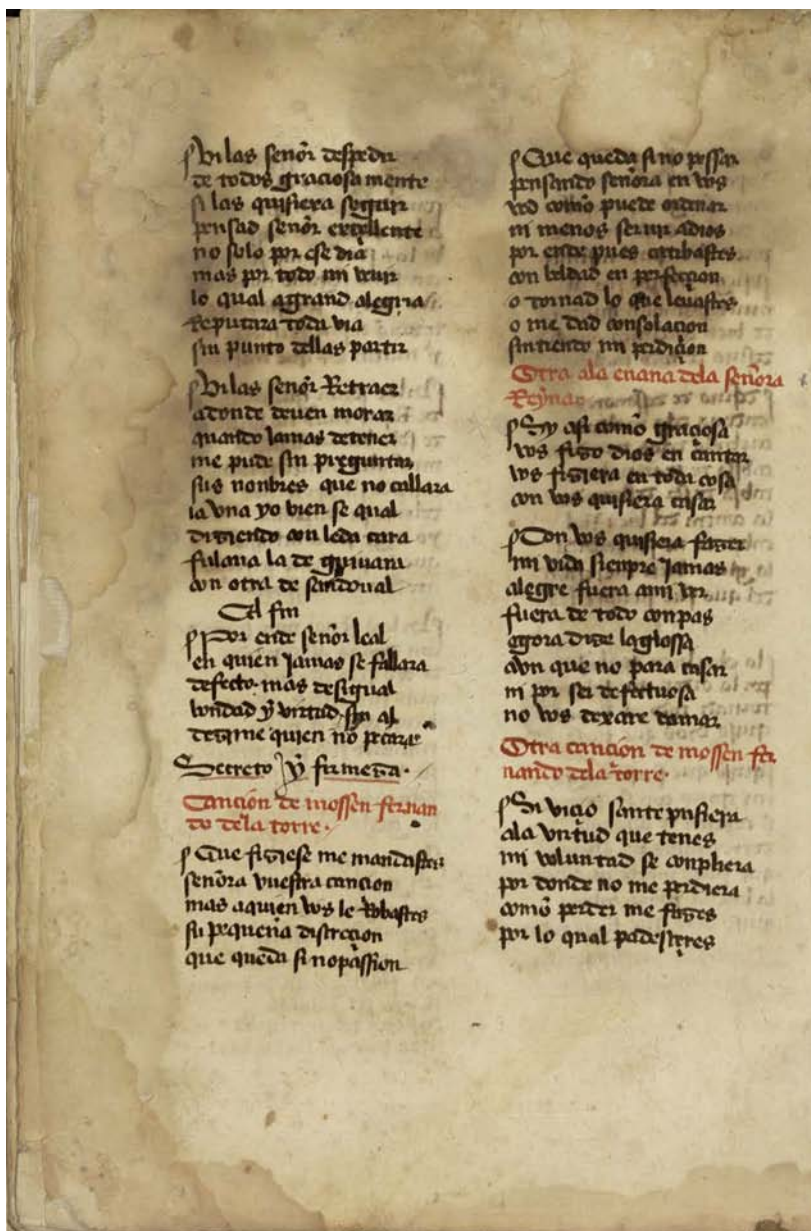 Vi las señor despedir
de todos graciosa mente
si las quisiera seguir
pensad señor exçellente
no solo por ese dia
mas por todo mi venir
lo qual a grand alegria
Reputara toda via
sin punto dellas partir
Vi las señor Retraer
a donde deven morar
quando Jamas detener
me pude sin preguntar
sus nonbres que no callara
la vna yo bien se qual
diziendo con leda cara
fulana la de guivara
con otra de sandoual
El fin
Por ende señor leal
en quien Jamas se fallara
defecto mas desigual
bondad y virtud sin al
dezime quien no pecara
Secreto y firmeza
Canción de mossen fernan
do dela torre
Que fiziese me mandastes
señora vuestra cancion
mas aquien vos le Robastes
su pequeña discreçion
que queda si no passion
Que queda si no pessar
pensando señora en vos
ved como puede ordenar
ni menos seruir a dios
por ende pues catibastes
con beldad en perfeçion
o tornad lo que leuastes
o me dad consolacion
sintiendo mi perdiçion
Otra ala enana dela señora
Reyna
Sy asi como graciosa
vos fizo dios en cantar
vos fiziera en toda cosa
con vos quisiera casar
Con vos quisiera fazer
mi vida sienpre Jamas
alegre fuera ami ver
fuera de todo conpas
agora dize la glossa
avn que no para casar
ni por ser defectuosa
no vos dexare damar
Otra canción de mossen fer
nando dela torre
Si viçio sante pusiera
ala virtud que tenes
mi voluntad se conpliera
por donde no me perdiera
como perder me fazes
por lo qual padesçeres